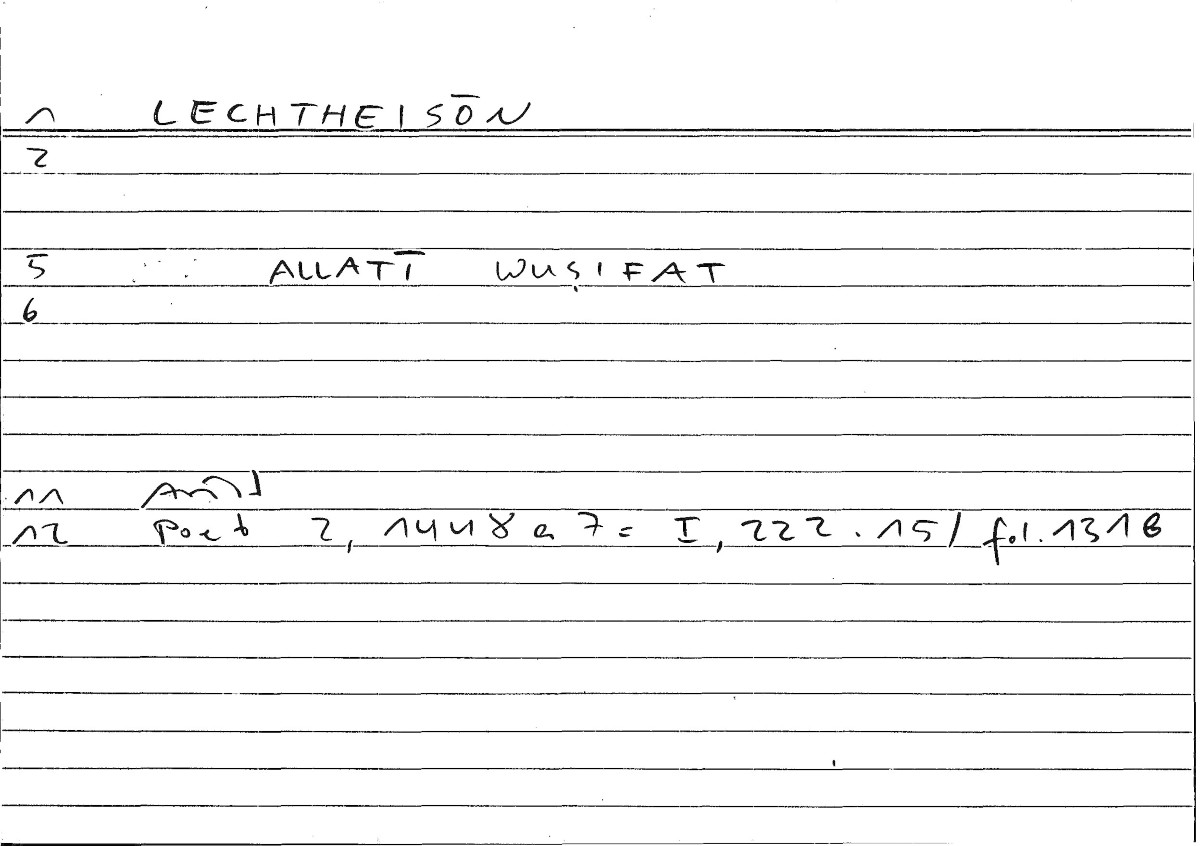 1 LECHTHEISŌN
2
5 ALLATĪ WUṢIFAT
6
11 Arist
12 Poet 2, 1448 a 7 = I, 222.15 / fol. 131b